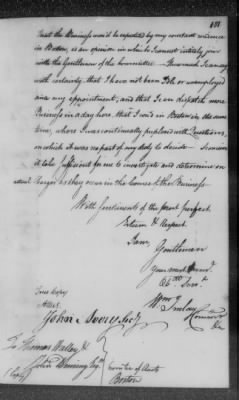 that the Business wou'd be expedited by my constant residence
in Boston, is an opinion in which I cannot intirely join
with the Gentlemen of the Committee. Thus much I can say
with certainty, that I have not been Idle or unemployed
since my appointment; and that I can dispatch more
Business in a day here, that I cou'd in Boston in the same
time, where I was continually perplexed with Questions,
on which it was no part of my duty to decide
it take sufficient for me to investigate and determine on
as they occur in the course of the Business.
With Sentiments of the most perfect
Esteem & Respect
I am,
Gentlemen
Your most
Ob. Serv.
Wm. Imlay
True Copy
Attest
John Avery Secy.
To Thomas Walley &
John Esqrs.
Committee of
Boston
(Copy)